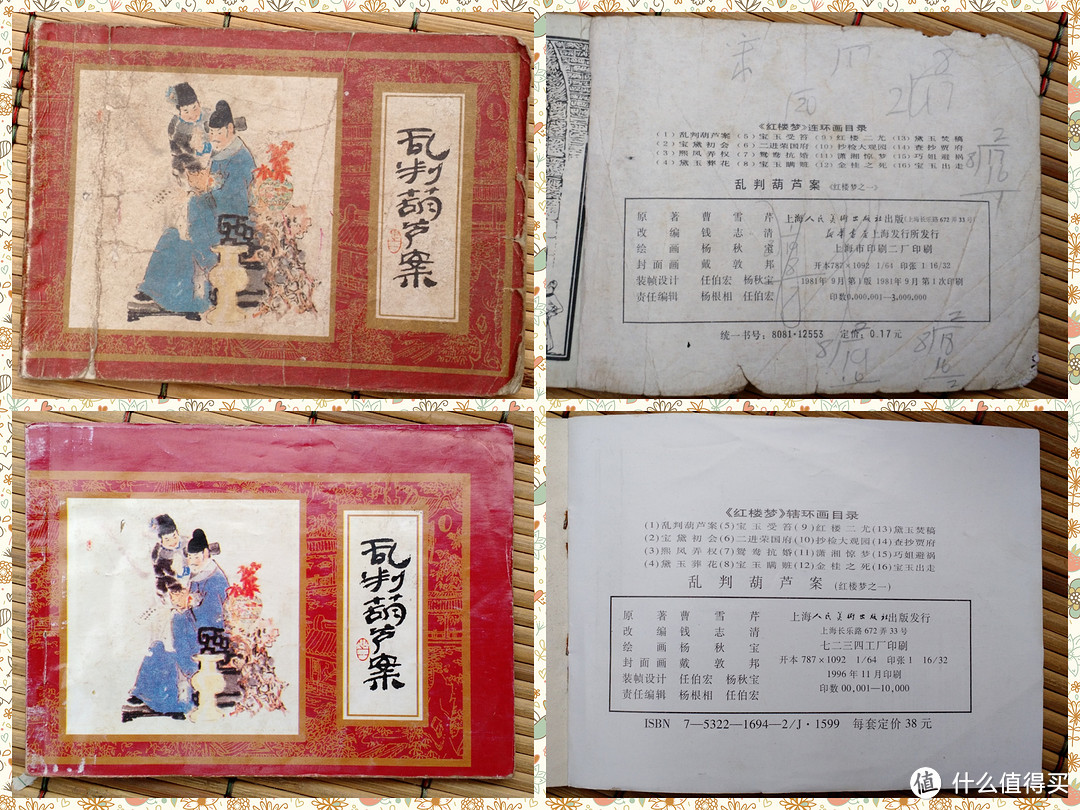 乱判葫芦案
《红楼梦》连环画目录
(1)乱判葫芦案 (5)宝玉受笞 (9)红楼二尤 (13)黛玉焚稿
(2)宝黛初会 (6)二进荣国府 (10)抄检大观园 (14)查抄贾府
(3)熊凤弄权 (7)鸳鸯抗婚 (11)潇湘惊梦 (15)巧姐避祸
(4)黛玉葬花 (8)宝玉瞒赃 (12)金桂之死 (16)宝玉出走
乱判葫芦案 (红楼梦之一)
原著 曹雪芹
改编 钱志清
绘画 杨秋宝
封面画 戴敦邦
装帧设计 任伯宏 杨秋宝
责任编辑 杨根相 任伯宏
上海人民美术出版社出版(上海长乐路672弄33号)
新华书店上海发行所发行
上海市印刷二厂印刷
开本787×1092 1/64 印张1·16/32
1981年9月第1版 1981年9月第1次印刷
印数0,000,001—3,000,000
统一书号:8081·12553 定价:0.17元
乱判葫芦案
《红楼梦》辖环画目录
(1)乱判葫芦案(5)宝玉受笞(9)红楼二尤(13)黛玉焚稿
(2)宝黛初会(6)二进荣国府(10)抄检大观园(14)查抄贾府
(3)熊凤弄权(7)鸳鸯抗婚(11)潇湘惊梦(15)巧姐避祸
(4)黛玉葬花(8)宝玉瞒赃(12)金桂之死(16)宝玉出走
乱判葫芦案 (红楼梦之一)
原著 曹雪芹
改编 钱志清
绘画 杨秋宝
封面画 戴敦邦
装帧设计 任伯宏 杨秋宝
责任编辑 杨根相 任伯宏
上海人民美術出版社出版发行
上海长乐路672弄33号
七二三四工厂印刷
开本787×1092 1/64 印张1 16/32
1996年11月印刷
印数00,001—10,000
ISBN 7—5322—1694—2/J·1599 每套定价38元
值 什么值得买